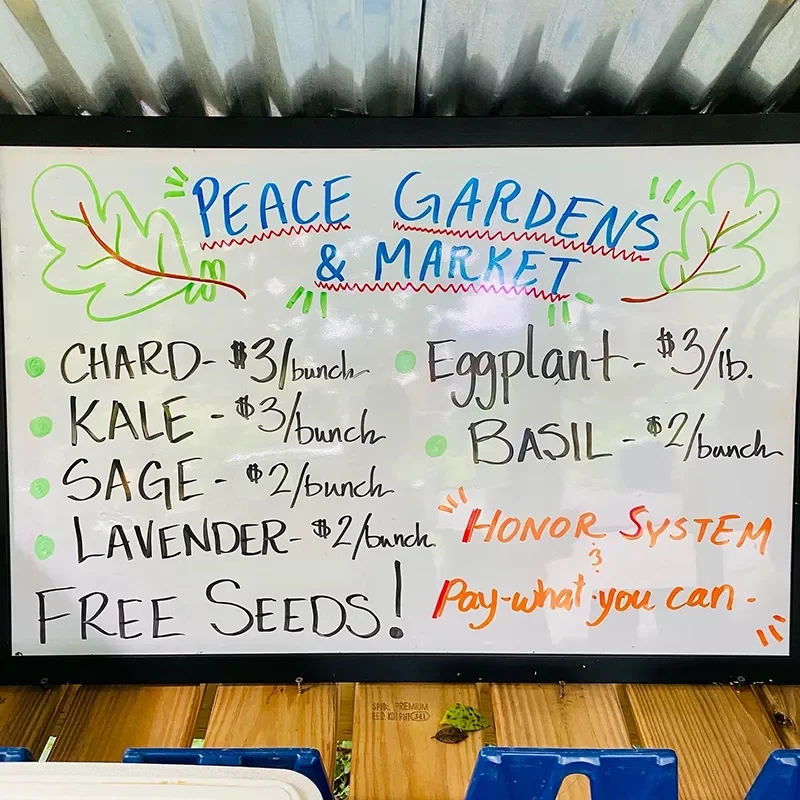 PEACE GARDENS
& MARKET
CHARD- $3/bunch
KALE - $3/bunch
SAGE- $2/bunch
LAVENDER- $2/bunch
FREE SEEDS!
Eggplant - $3/lb.
BASIL - $2/bunch
HONOR SYSTEM
&
Pay-what-you can -
PREMIUM